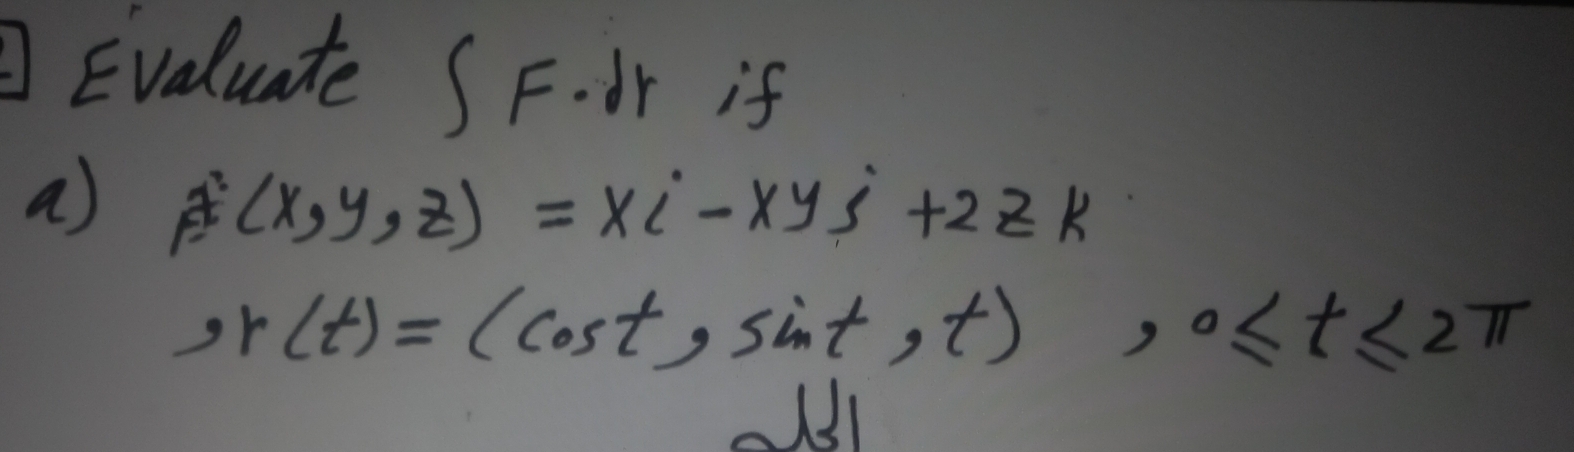 Evaluate ∫ F.dr if
a) F(x,y,z) = xi - xyj + 2zk
,r(t) = (cost, sint, t) , 0≤t≤2π